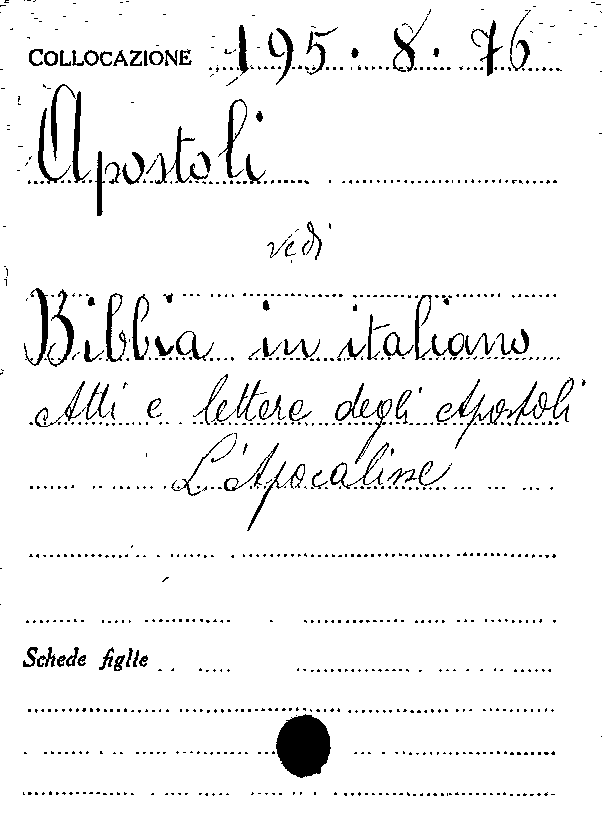 COLLOCAZIONE 195.8.76
Apostoli
vedi
Bibbia in italiano
Atti e lettere degli Apostoli
L'Apocalisse
Schede figlie